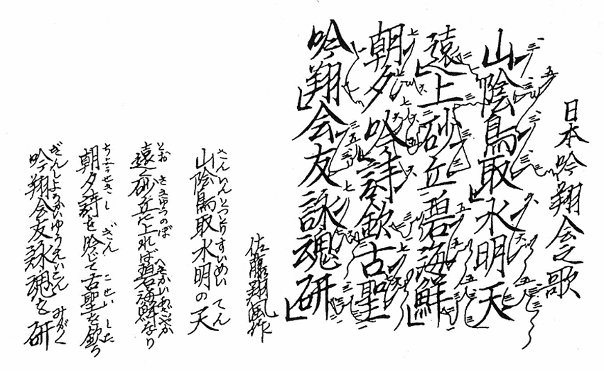 日本吟翔会之歌
山陰鳥取水明天
遠上砂丘碧海鮮
朝夕吟詩欽古聖
吟翔会友詠魂研
佐藤翔風作
さんいんとっとりすいめい てん
山陰鳥取水明の天
とお さきゅうのぼ
遠く砂丘に上れば碧海鮮なり
ちょうせきし ぎん こせい した
朝夕詩を吟じて古聖を欽う
ぎんしょうかいゆうえいこん みがく
吟翔会友詠魂を研